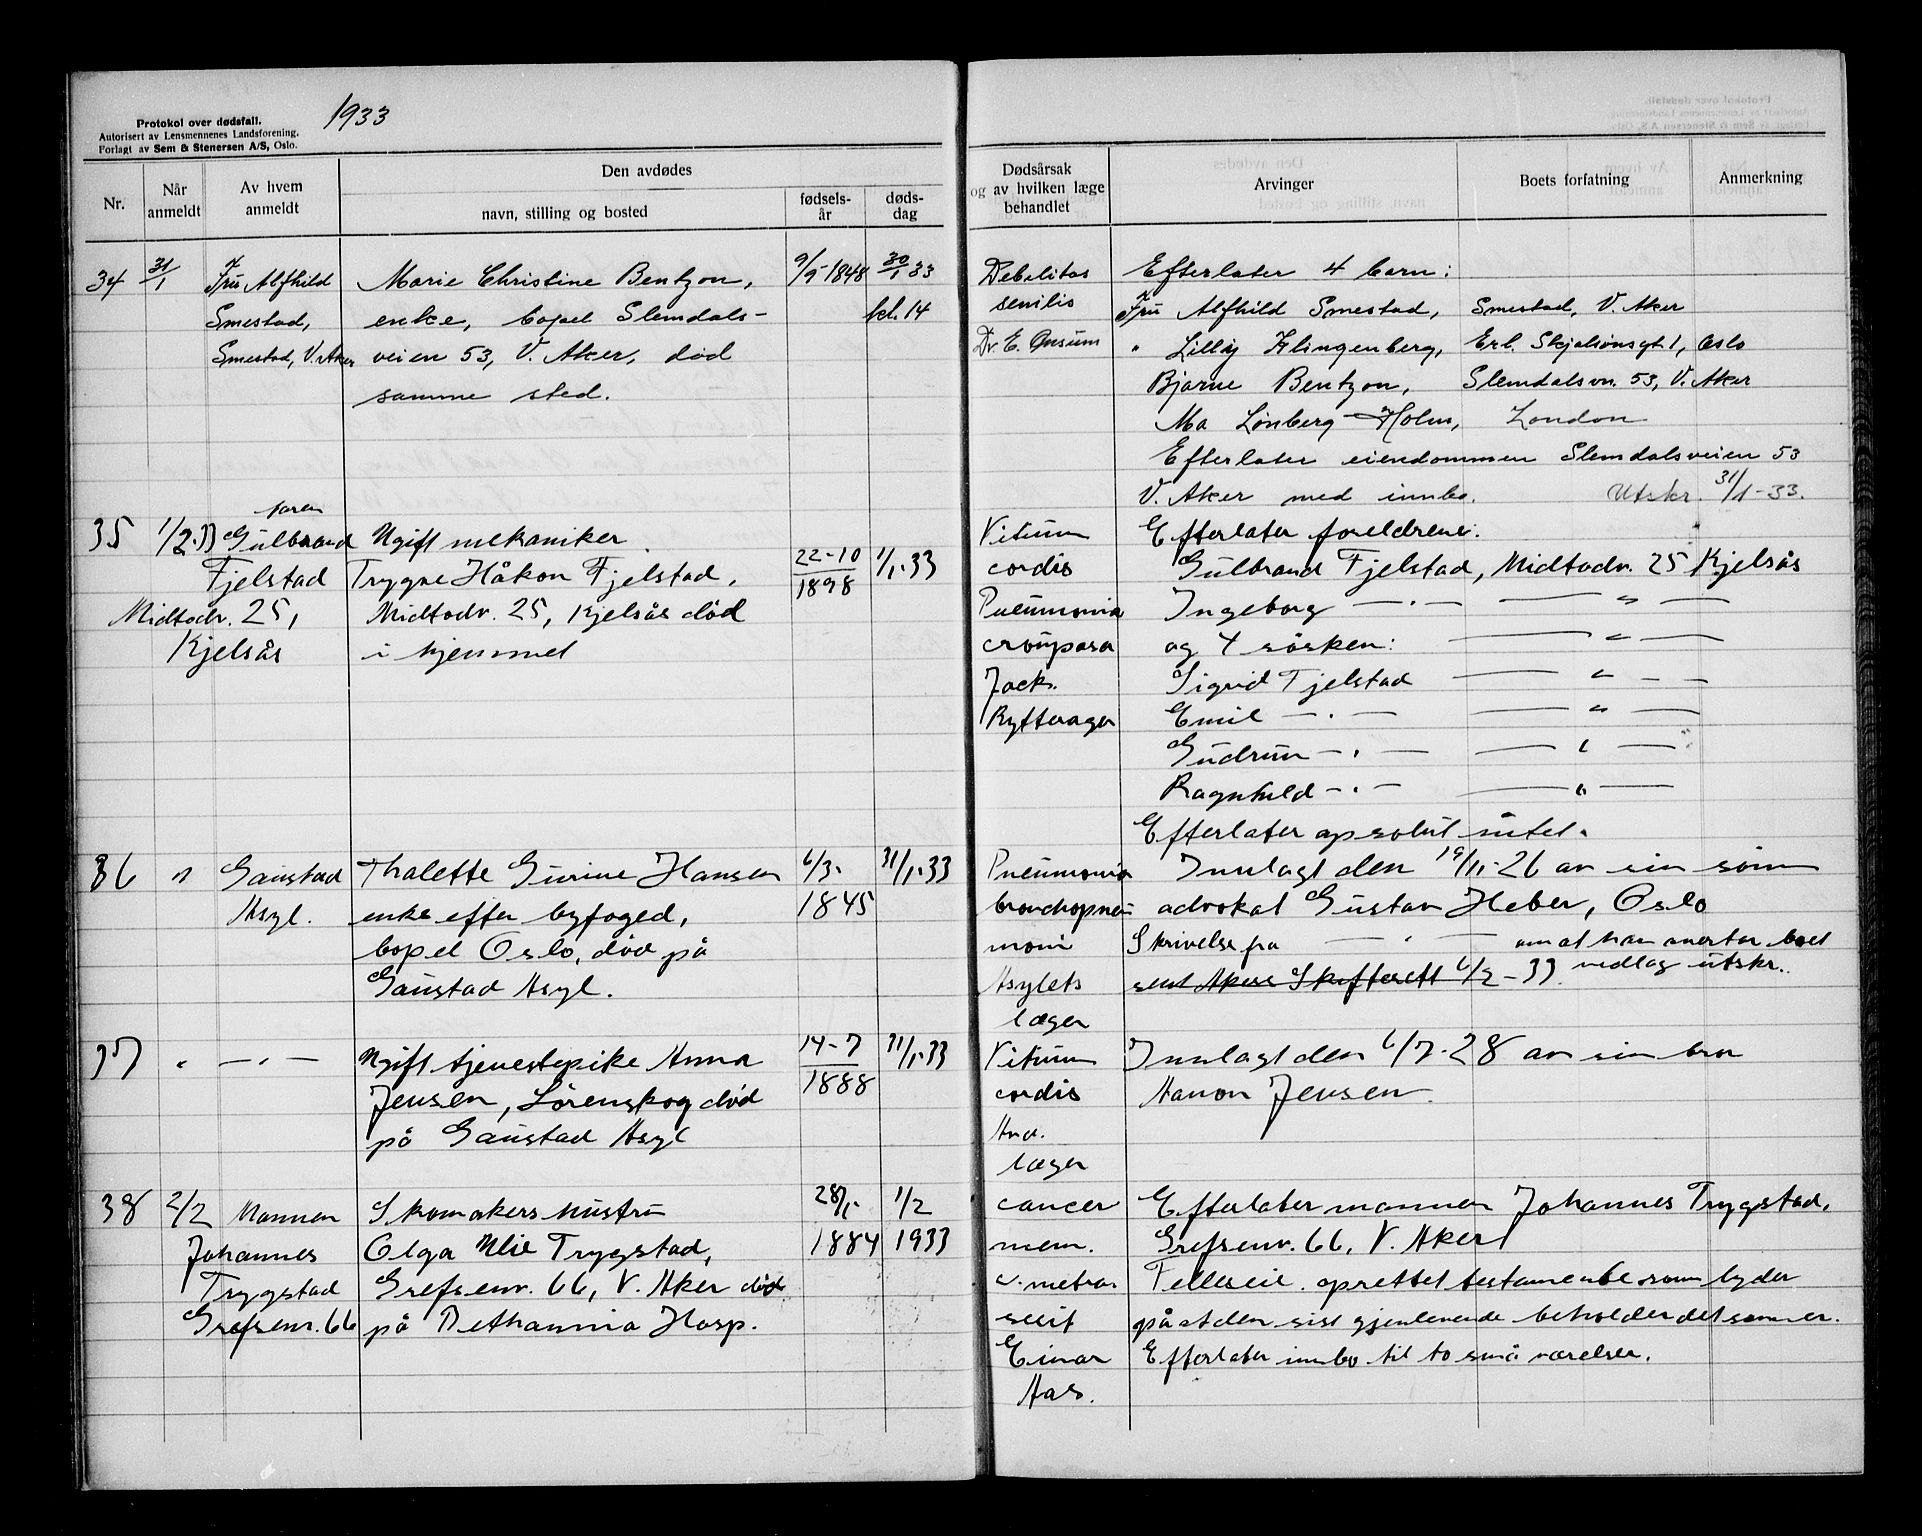 1933
Protokol over dødsfall.
Autorisert av Lensmennenes Landsforening.
Forlagt av Sem & Stenersen A/S, Oslo.
Nr.
Når anmeldt
Av hvem anmeldt
Den avdødes
navn, stilling og bosted
fødselsår
dødsdag
Dødsårsak og av hvilken læge behandlet
Arvinger
Boets forfatning
Anmerkning
34 31/1 Fru Alfhild Marie Christine Bentzon, 9/5-1848 30/1 33
Smestad, enke, bopæl Slemdals- kl. 14
Smestad, V. Aker veien 53, V. Aker, død
samme sted.
Debelitas Efterlater 4 barn:
senilis Fru Alfhild Smestad, Smestad, V. Aker
Dr. E. " Lilly Klingenberg, Erl. Skjalsonsgt. 1, Oslo
Bjarne Bentzon, Slemdalsvn. 53, V. Aker
Lönberg-Holm, London
Efterlater eiendommen Slemdalsveien 53
V. Aker med innbo. Utskr. 31/1-33.
faren
35 1/2.33 Gulbrand Ugift mekaniker
Fjelstad Trygve Håkon Fjelstad, 22-10 1898 1/1.33
Midtodv. 25, Midtodv. 25, Kjelsås død
Kjelsås i hjemmet
Vitium Efterlater foreldrene:
cordis Gulbrand Fjelstad, Midtodv. 25 Kjelsås
Pneumonia Ingeborg — " — — " —
crouposa og 4 søsken: — " —
Jack. Sigrid Fjelstad — " —
Ryfterager Emil — " — — " —
Gudrun — " — — " —
Ragnhild — " — — " —
Efterlater apsolut intet.
36 " Gaustad Thalette Gurine Hansen 6/3- 31/1.33
Asyl. enke efter byfoged, 1845
bopel Oslo, død på
Gaustad Asyl.
Pneumonia Innlagt den 19/11-26 av sin sönn
bronchopneu advokat Gustav Heber, Oslo
moni Skrivelse fra — " — om at han overtar boet
Asylets sent Akers Skifterett 6/2-33. vedlag utskr.
læger
37 " — " — Ugift tjenestepike Anna 14-7 31/1.33
Jensen, Lörenskog død 1888
på Gaustad Asyl
Vitium Innlagt den 6/7-28 av sin bror
cordis Aanon Jensen.
And.
læger
38 2/2 Mannen Skomakers hustru 28/1- 1/2
Johannes Olga Trygstad, 1884 1933
Trygstad Grefsenv. 66, V. Aker død
Grefsenv. 66 på Bethannia Hosp.
cancer Efterlater mannen Johannes Trygstad,
mem. Grefsenv. 66, V. Aker
Felleseie. oprettet testamente som lyder
på at den sist gjenlevende beholder det som er.
Einar Efterlater innbo til to små værelser.
Aas.